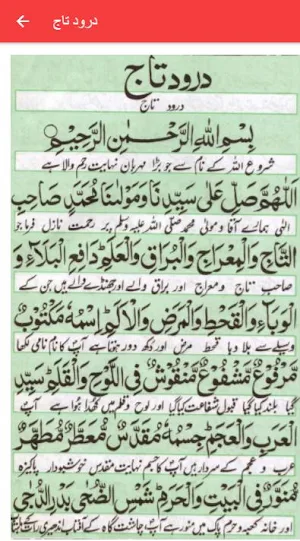 درود تاج
درود تاج
درود تاج
بِسْمِ اللهِ الرَّحْمٰنِ الرَّحِيْمِ
شروع اللہ کے نام سے جو بڑا مہربان نہایت رحم والا ہے
اَللّٰهُمَّ صَلِّ عَلٰى سَيِّدِنَا وَمَوْلٰنَا مُحَمَّدٍ صَاحِبِ
الٰہی ہمارے آقا و مولیٰ محمد صلی اللہ علیہ وسلم پر رحمت نازل فرما جو
التَّاجِ وَالْمِعْرَاجِ وَالْبُرَاقِ وَالْعَلَمِ دَافِعِ الْبَلَاءِ وَ
صاحب تاج و معراج اور براق والے اور جھنڈے والے ہیں جن کے
الْوَبَاءِ وَالْقَحْطِ وَالْمَرَضِ وَالْاَلَمِ اِسْمُهٗ مَكْتُوْبٌ
وسیلے سے بلا وبا قحط مرض اور دکھ دور ہوتا ہے آپ کا نام نامی لکھا
مَّرْفُوْعٌ مَّشْفُوْعٌ مَّنْقُوْشٌ فِي اللَّوْحِ وَالْقَلَمِ سَيِّدِ
گیا بلند کیا گیا قبول شفاعت کیا گیا اور لوح و قلم میں کھدا ہوا ہے آپ
الْعَرَبِ وَالْعَجَمِ جِسْمُهٗ مُقَدَّسٌ مُّعَطَّرٌ مُّطَهَّرٌ
عرب و عجم کے سردار ہیں آپ کا جسم نہایت مقدس خوشبودار پاکیزہ
مُّنَوَّرٌ فِي الْبَيْتِ وَالْحَرَمِ شَمْسِ الضُّحٰى بَدْرِ الدُّجٰى
اور خانہ کعبہ و حرم پاک میں منور ہے آپ چاشت گاہ کے آفتاب اندھیری رات کے